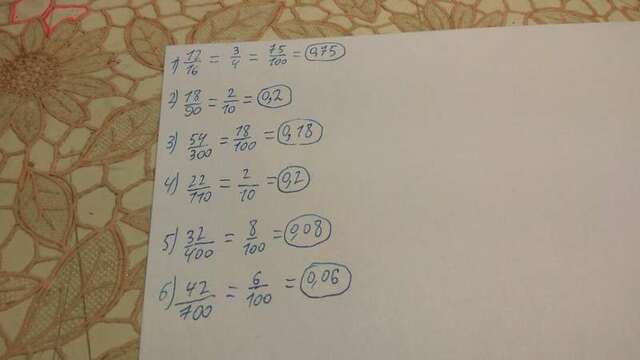 1) 12/16 = 3/4 = 75/100 = 0,75
2) 18/90 = 2/10 = 0,2
3) 54/300 = 18/100 = 0,18
4) 22/110 = 2/10 = 0,2
5) 32/400 = 8/100 = 0,08
6) 42/700 = 6/100 = 0,06